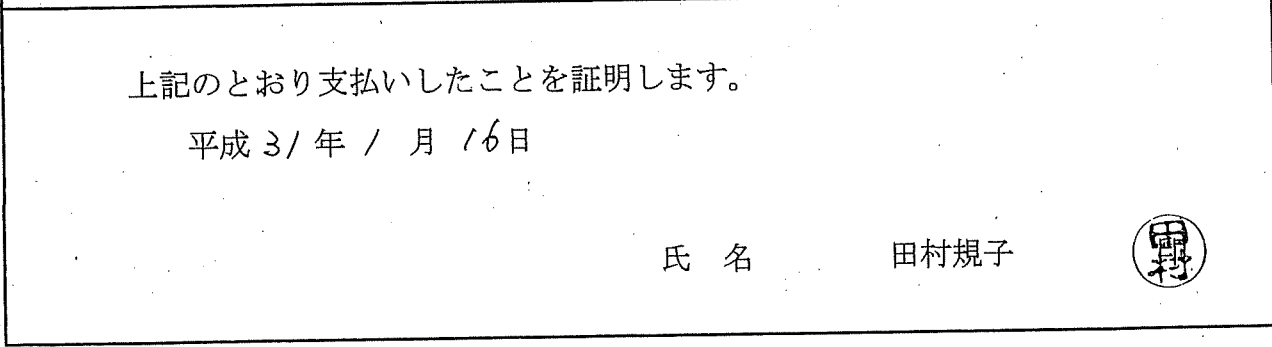 上記のとおり支払いしたことを証明します。
平成 31 年 1 月 16 日
氏 名 田村規子 田村